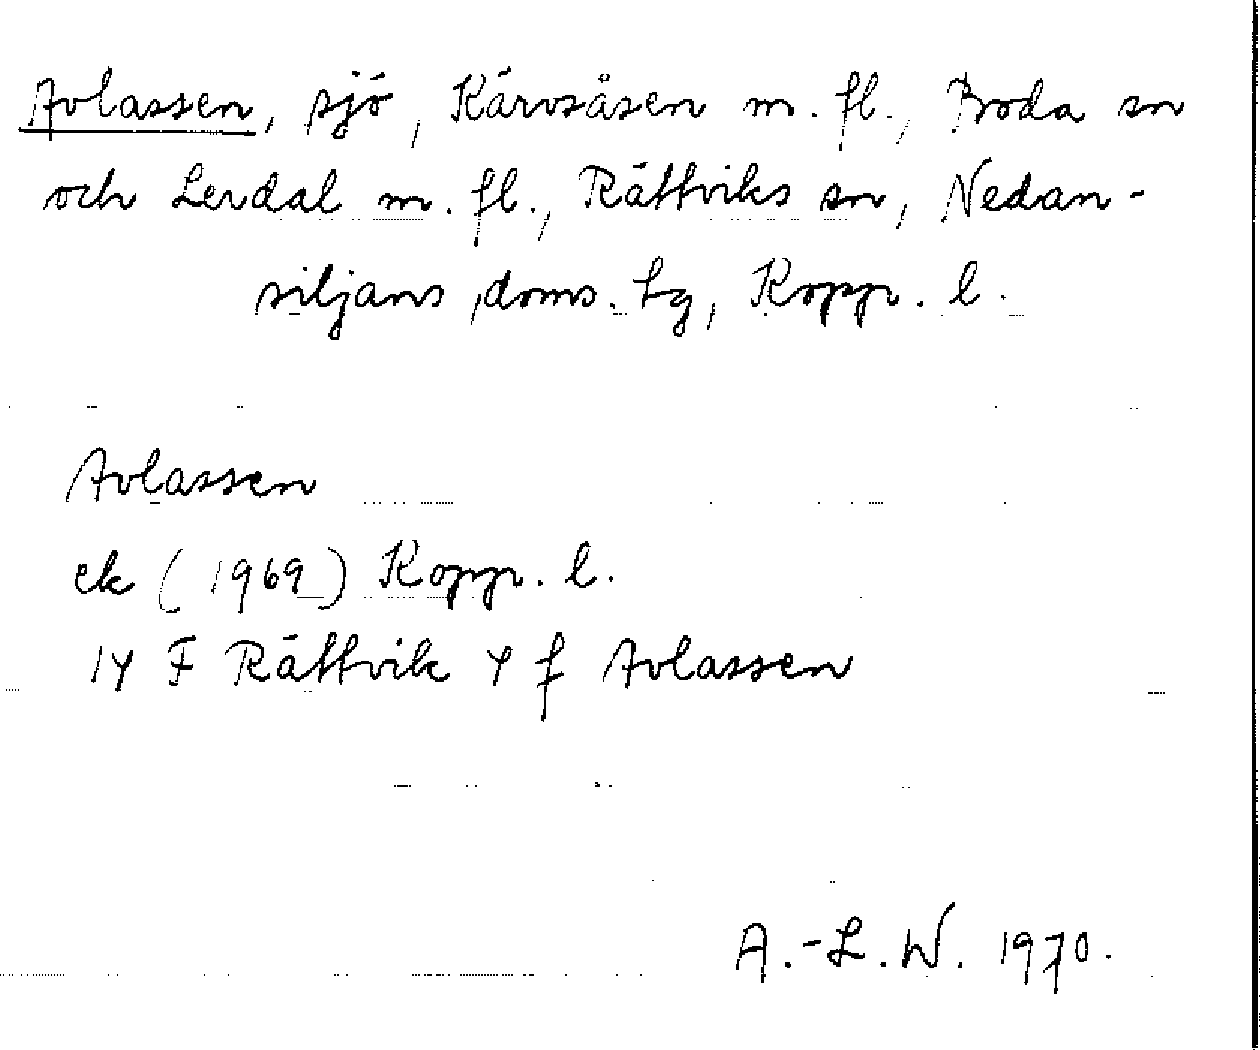 Avlassen, sjö, Kärvsåsen m. fl., Boda sn
och Lerdal m. fl., Rättviks sn, Nedan-
siljans doms. tg, Kopp. l.
Avlassen
ek (1969) Kopp. l.
14 F Rättvik 4 f Avlassen
A.-L. W. 1970.